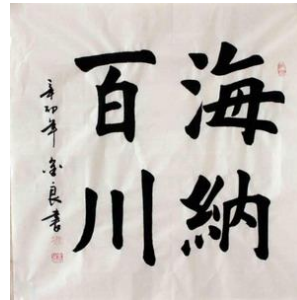 海納
百川
辛卯年金良書